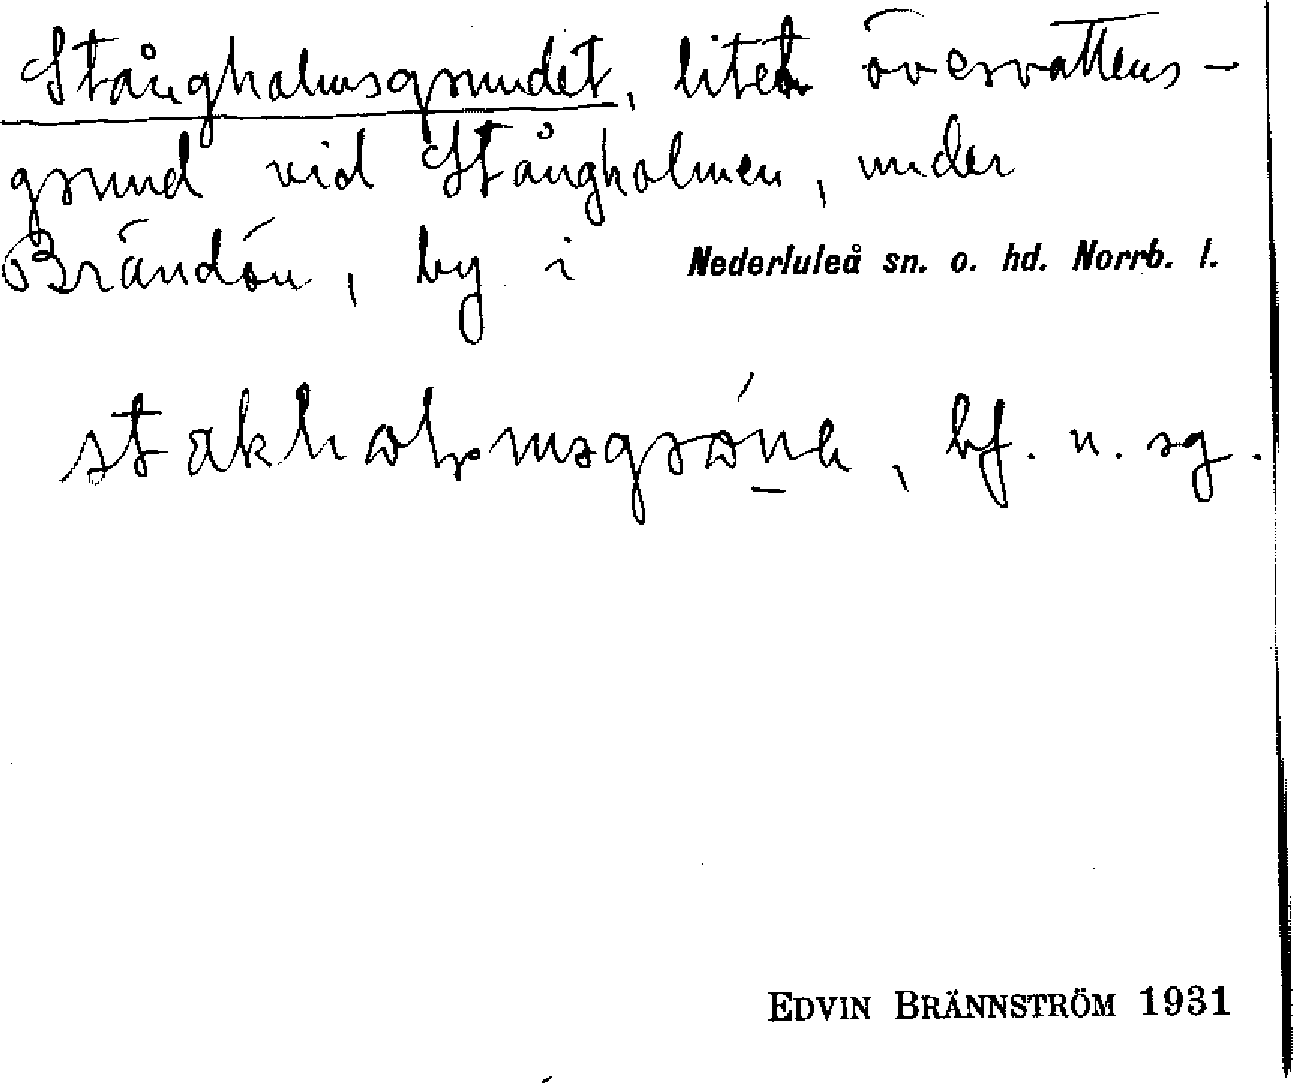 Stångholmsgrundet, litet övervattens-
grund vid Stångholmen, under
Brändön, by i Nederluleå sn. o. hd. Norrb. l.
bf. n. sg.
EDVIN BRÄNNSTRÖM 1931